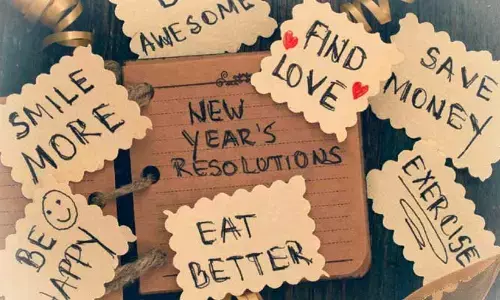 B
AWESOME
FIND
LOVE
SAVE
MONEY
SMILE
MORE
NEW
YEAR'S
RESOLUTIONS
BE
HAPPY
EAT
BETTER
EXERCISE